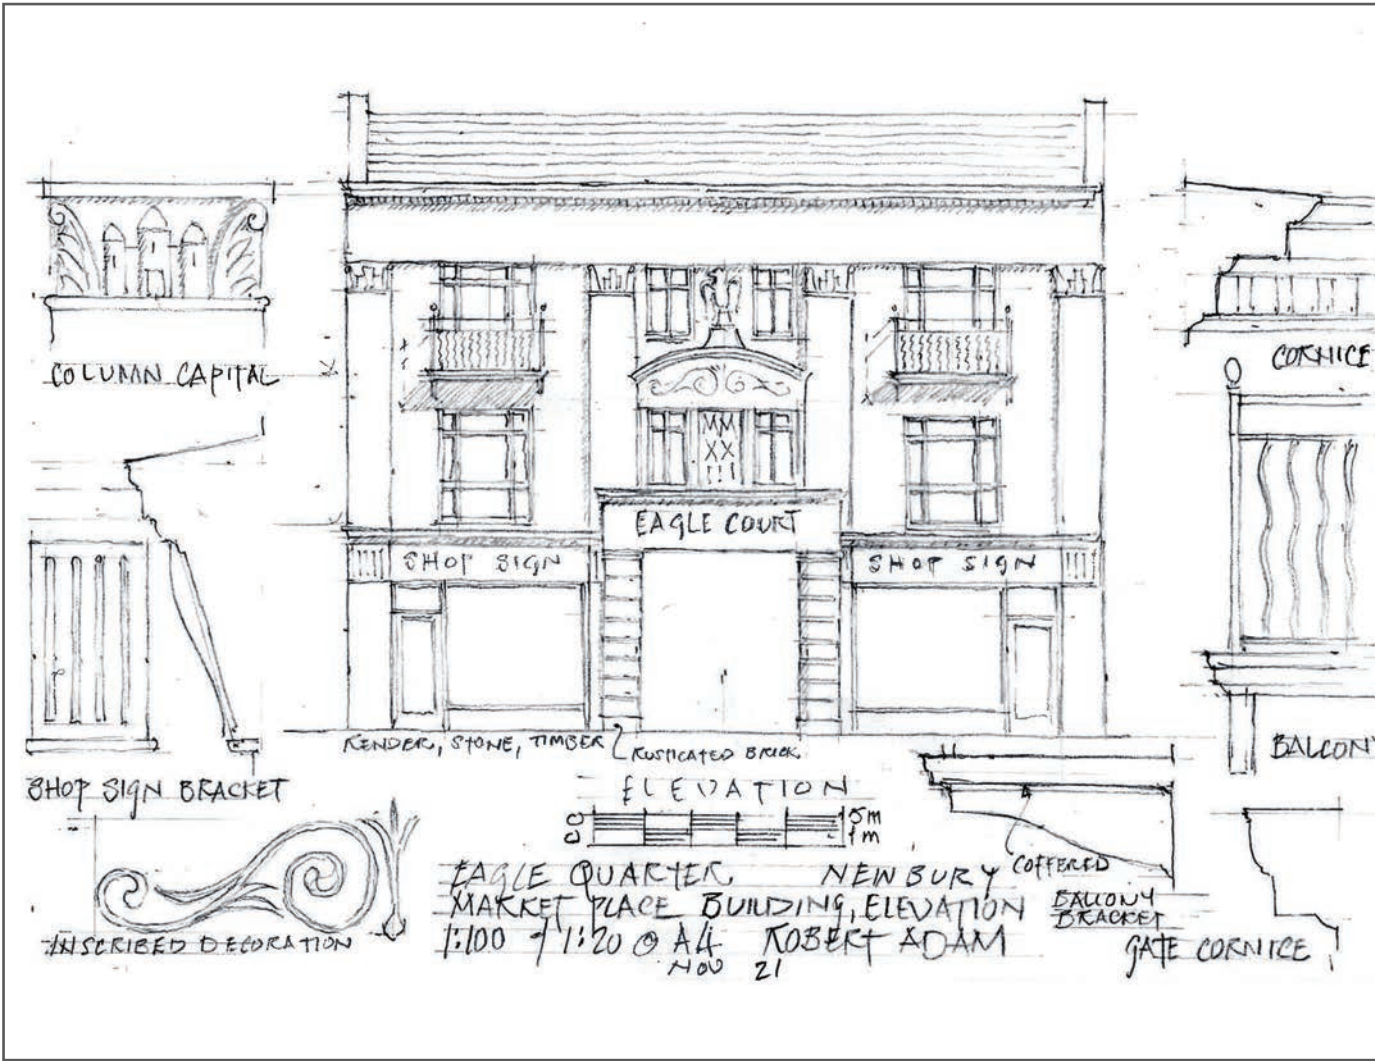 COLUMN CAPITAL
CORNICE
MM
XX
III
EAGLE COURT
SHOP SIGN
SHOP SIGN
RENDER, STONE, TIMBER
RUSTICATED BRICK
SHOP SIGN BRACKET
BALCON
ELEVATION
0 5m
0 1m
COFFERED
BALCONY
BRACKET
GATE CORNICE
INSCRIBED DECORATION
EAGLE QUARTER NEWBURY
MARKET PLACE BUILDING, ELEVATION
1:100 1:20 @ A4 ROBERT ADAM
NOV 21